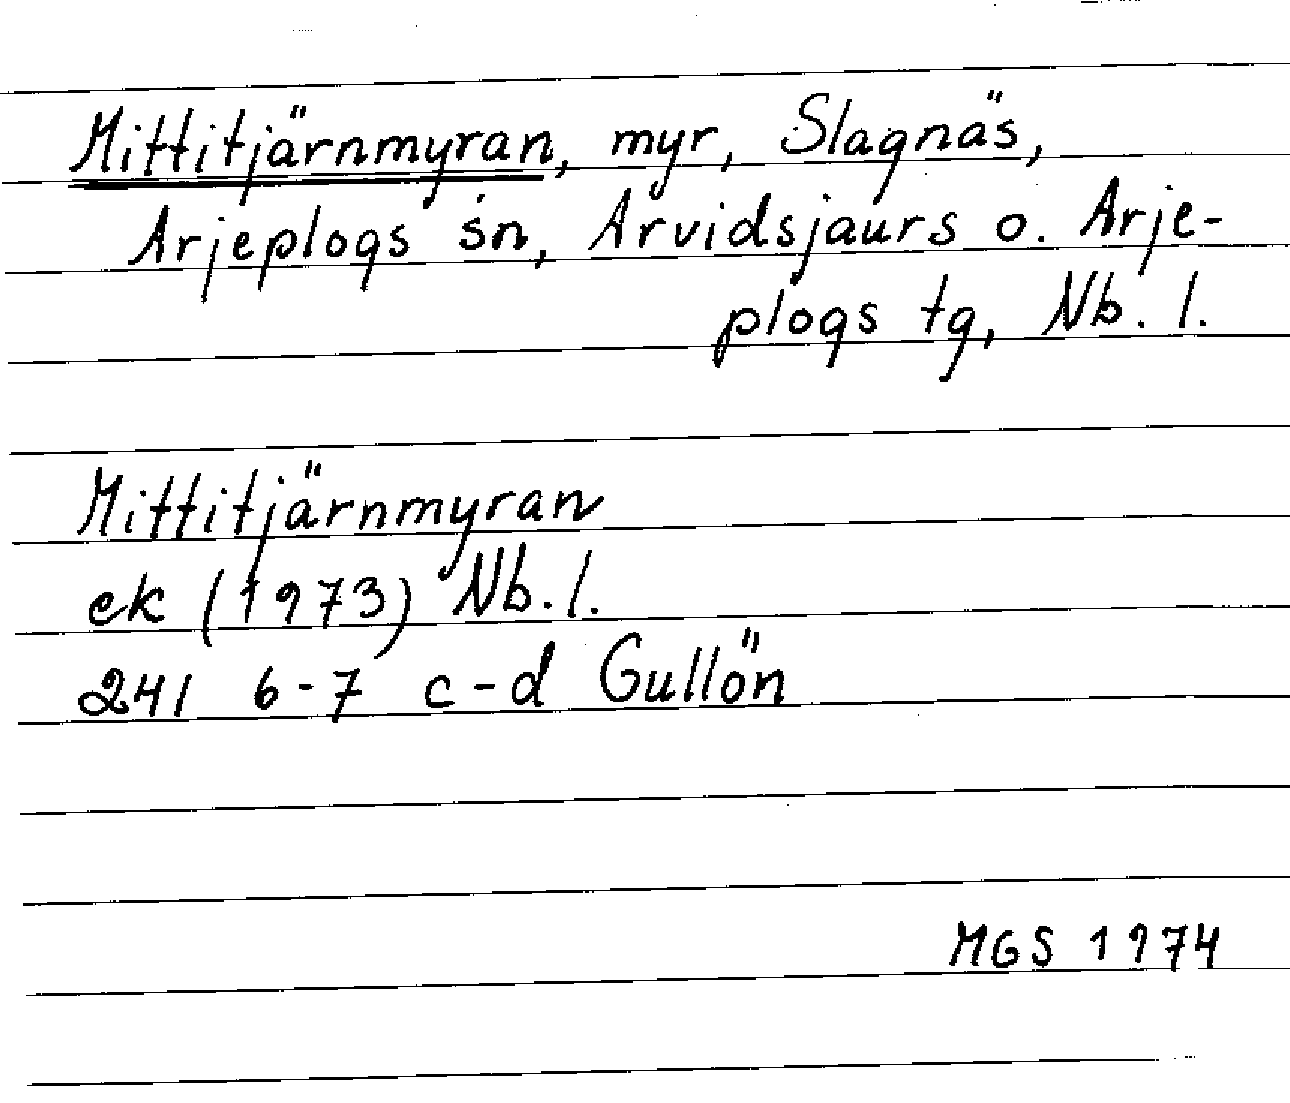 Mittitjärnmyran, myr, Slagnäs,
Arjeplogs sn, Arvidsjaurs o. Arje-
plogs tg, Nb. l.
Mittitjärnmyran
ek (1973) Nb. l.
241 6-7 c-d Gullön
MGS 1974